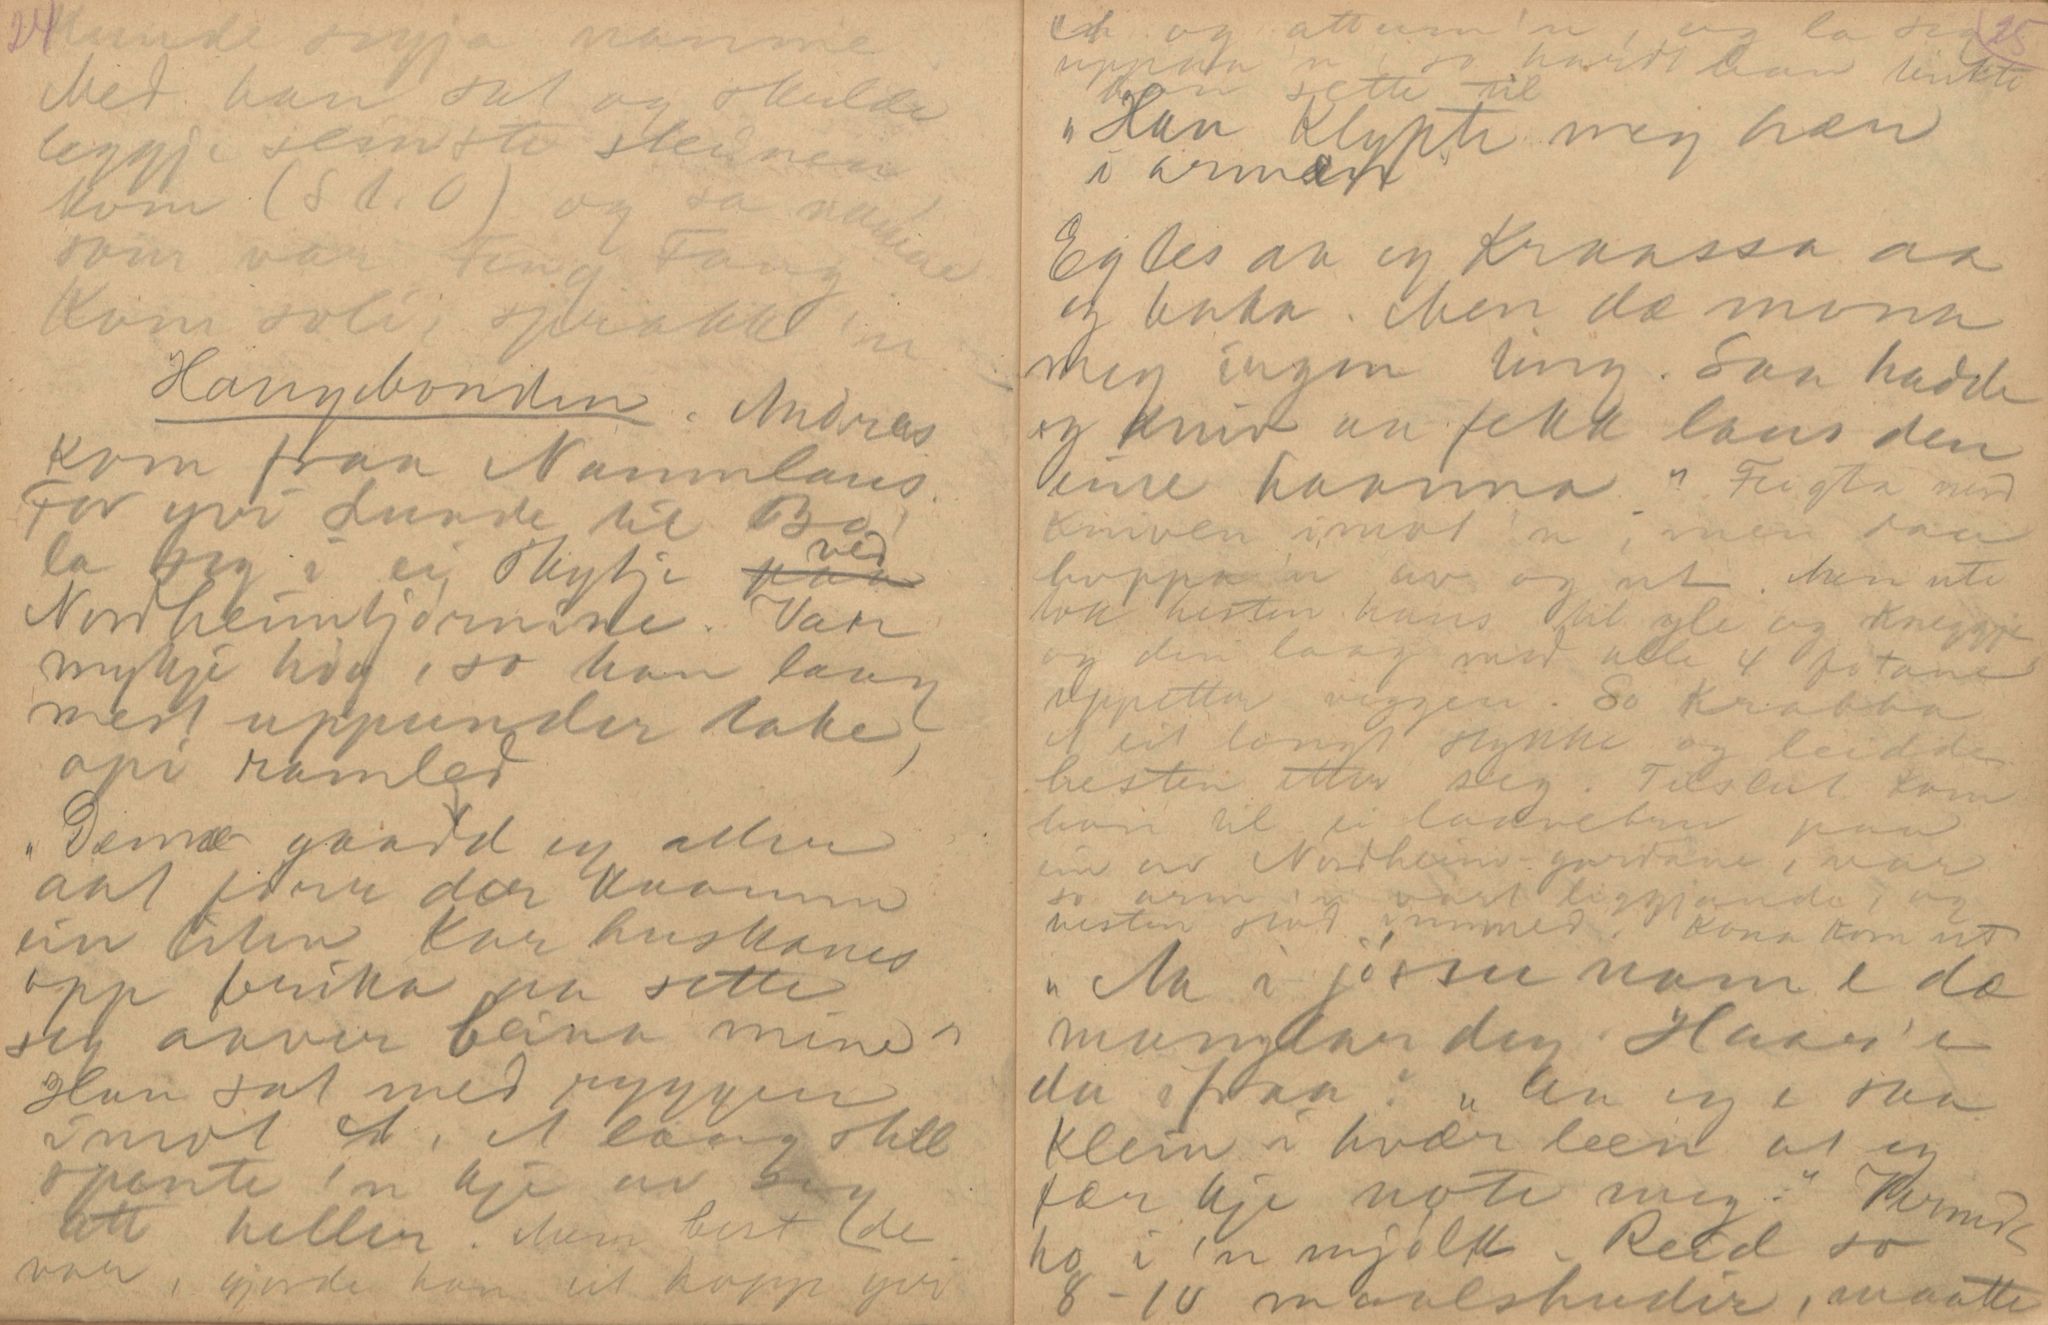 24
kunde segja namne
Med han sat og skulde
leggje seinste steinen
kom (St. O) og sa namne
som var Finn Fang
Kom soli, sprakk 'n
Haugebonden. Andreas
kom fraa Naumlaus.
For yvi Lunde til Bø,
la seg i ei skytje ved
Nordheimtjørnine. Var
mykje høy, so han laag
mest uppunder take,
opi ramled
"Denne gaard eg aller
aat førr der kaamm
ein liten kar huskanes
opp brika aa sette
seg aaver beina mine"
Han sat med ryggen
imot A. A laag still
spente 'n kje av seg
att heller. Men best de
var, gjorde han eit hopp yvi
25
og attum'n, og la seg
uppaa 'n so hardt han tinkte
han sette til
"Han klypte meg hær
i armen"
Eg les aa eg kraassa aa
eg baka. Men dæ mona
meg ingen ting. Saa hadde
eg kniv aa fekk laus den
eine haanna." Feigta med
kniven imot 'n, men daa
hoppa 'n av og ut. Men ute
tok hesten hans til yle og kneggje
og den laag med alle 4 føtane
uppetter veggen. So krabba
A eit langt stykke og leidde
hesten etter seg. Tilslut kom
han til ei laavebru paa
ein av Nordheim-gardane, var
so arm 'n vart liggjande, og
hesten stod immed. Kona kom ut
"Aa i jøssu namn e dæ
manglar deg. Haar'e
du ifraa?" "Aa eg e saa
klein i hvær leen at eg
tær kje røte meg." Vermde
ho i 'n mjølk. Reid so
8-10 maalshudir, maatte